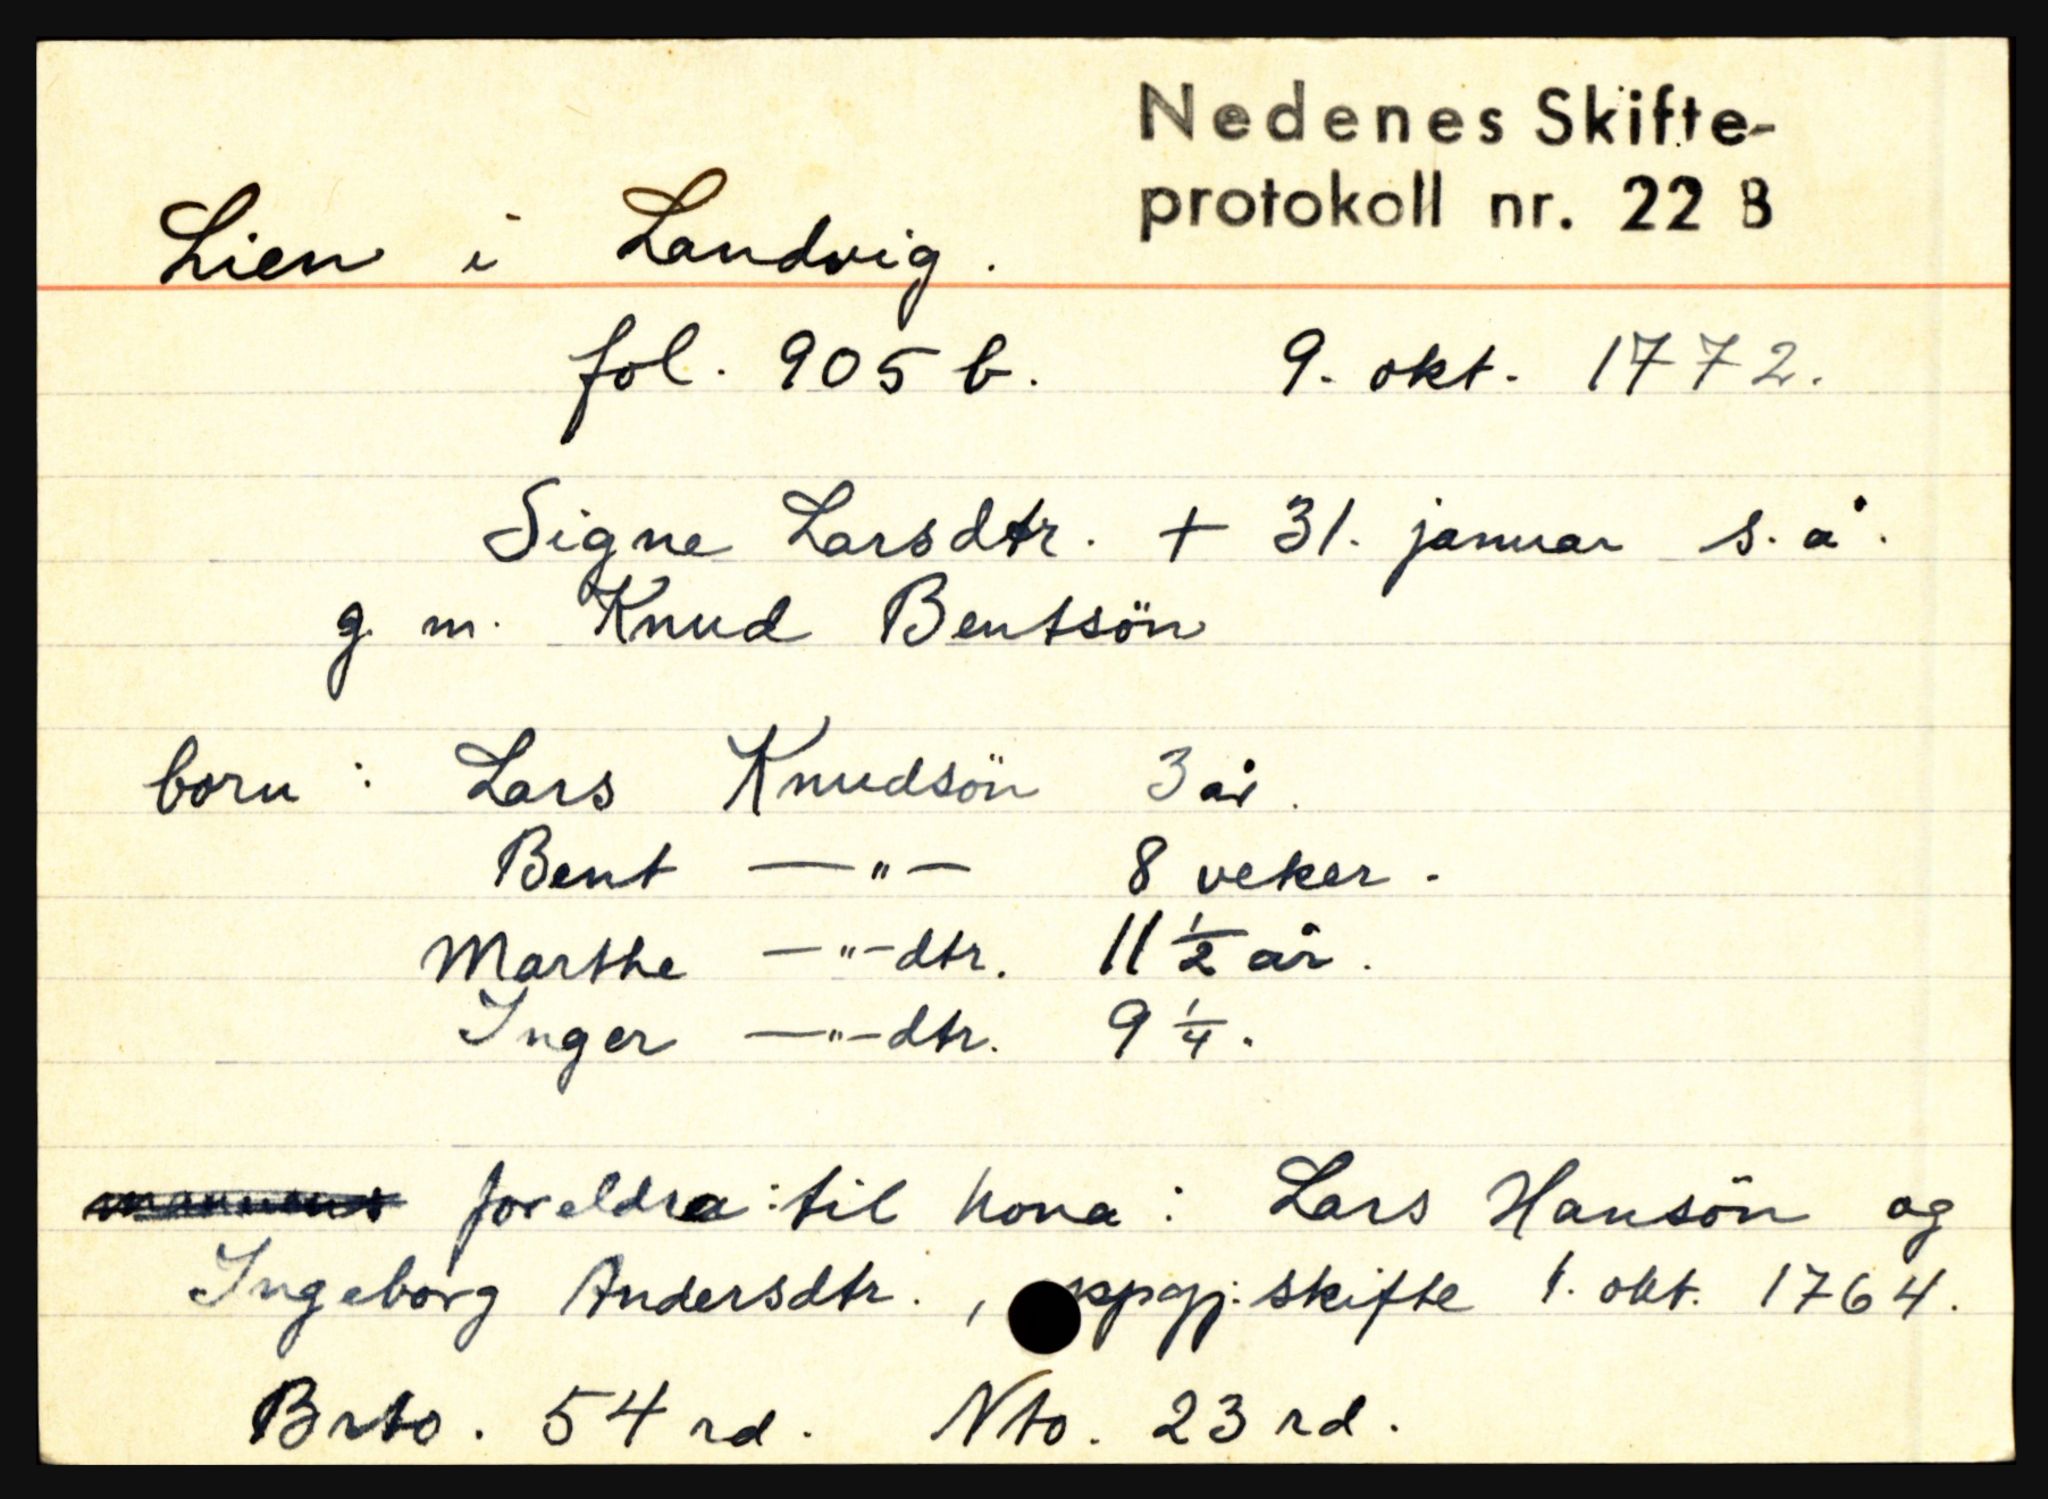 Nedenes Skifte-
protokoll nr. 22 B
Lien i Landvig.
fol. 905 b. 9. okt. 1772.
Signe Larsdtr. + 31. januar s. å.
g. m. Knud Bentsön
born: Lars Knudsön 3 år.
Bent —"— 8 veker.
Marthe —"—dtr. 11 1/2 år.
Inger —"—dtr. 9 1/4.
foreldra: til kona: Lars Hansön og
Ingeborg Andersdtr., skifte 1. okt. 1764.
Brto. 54 rd. Nto. 23 rd.